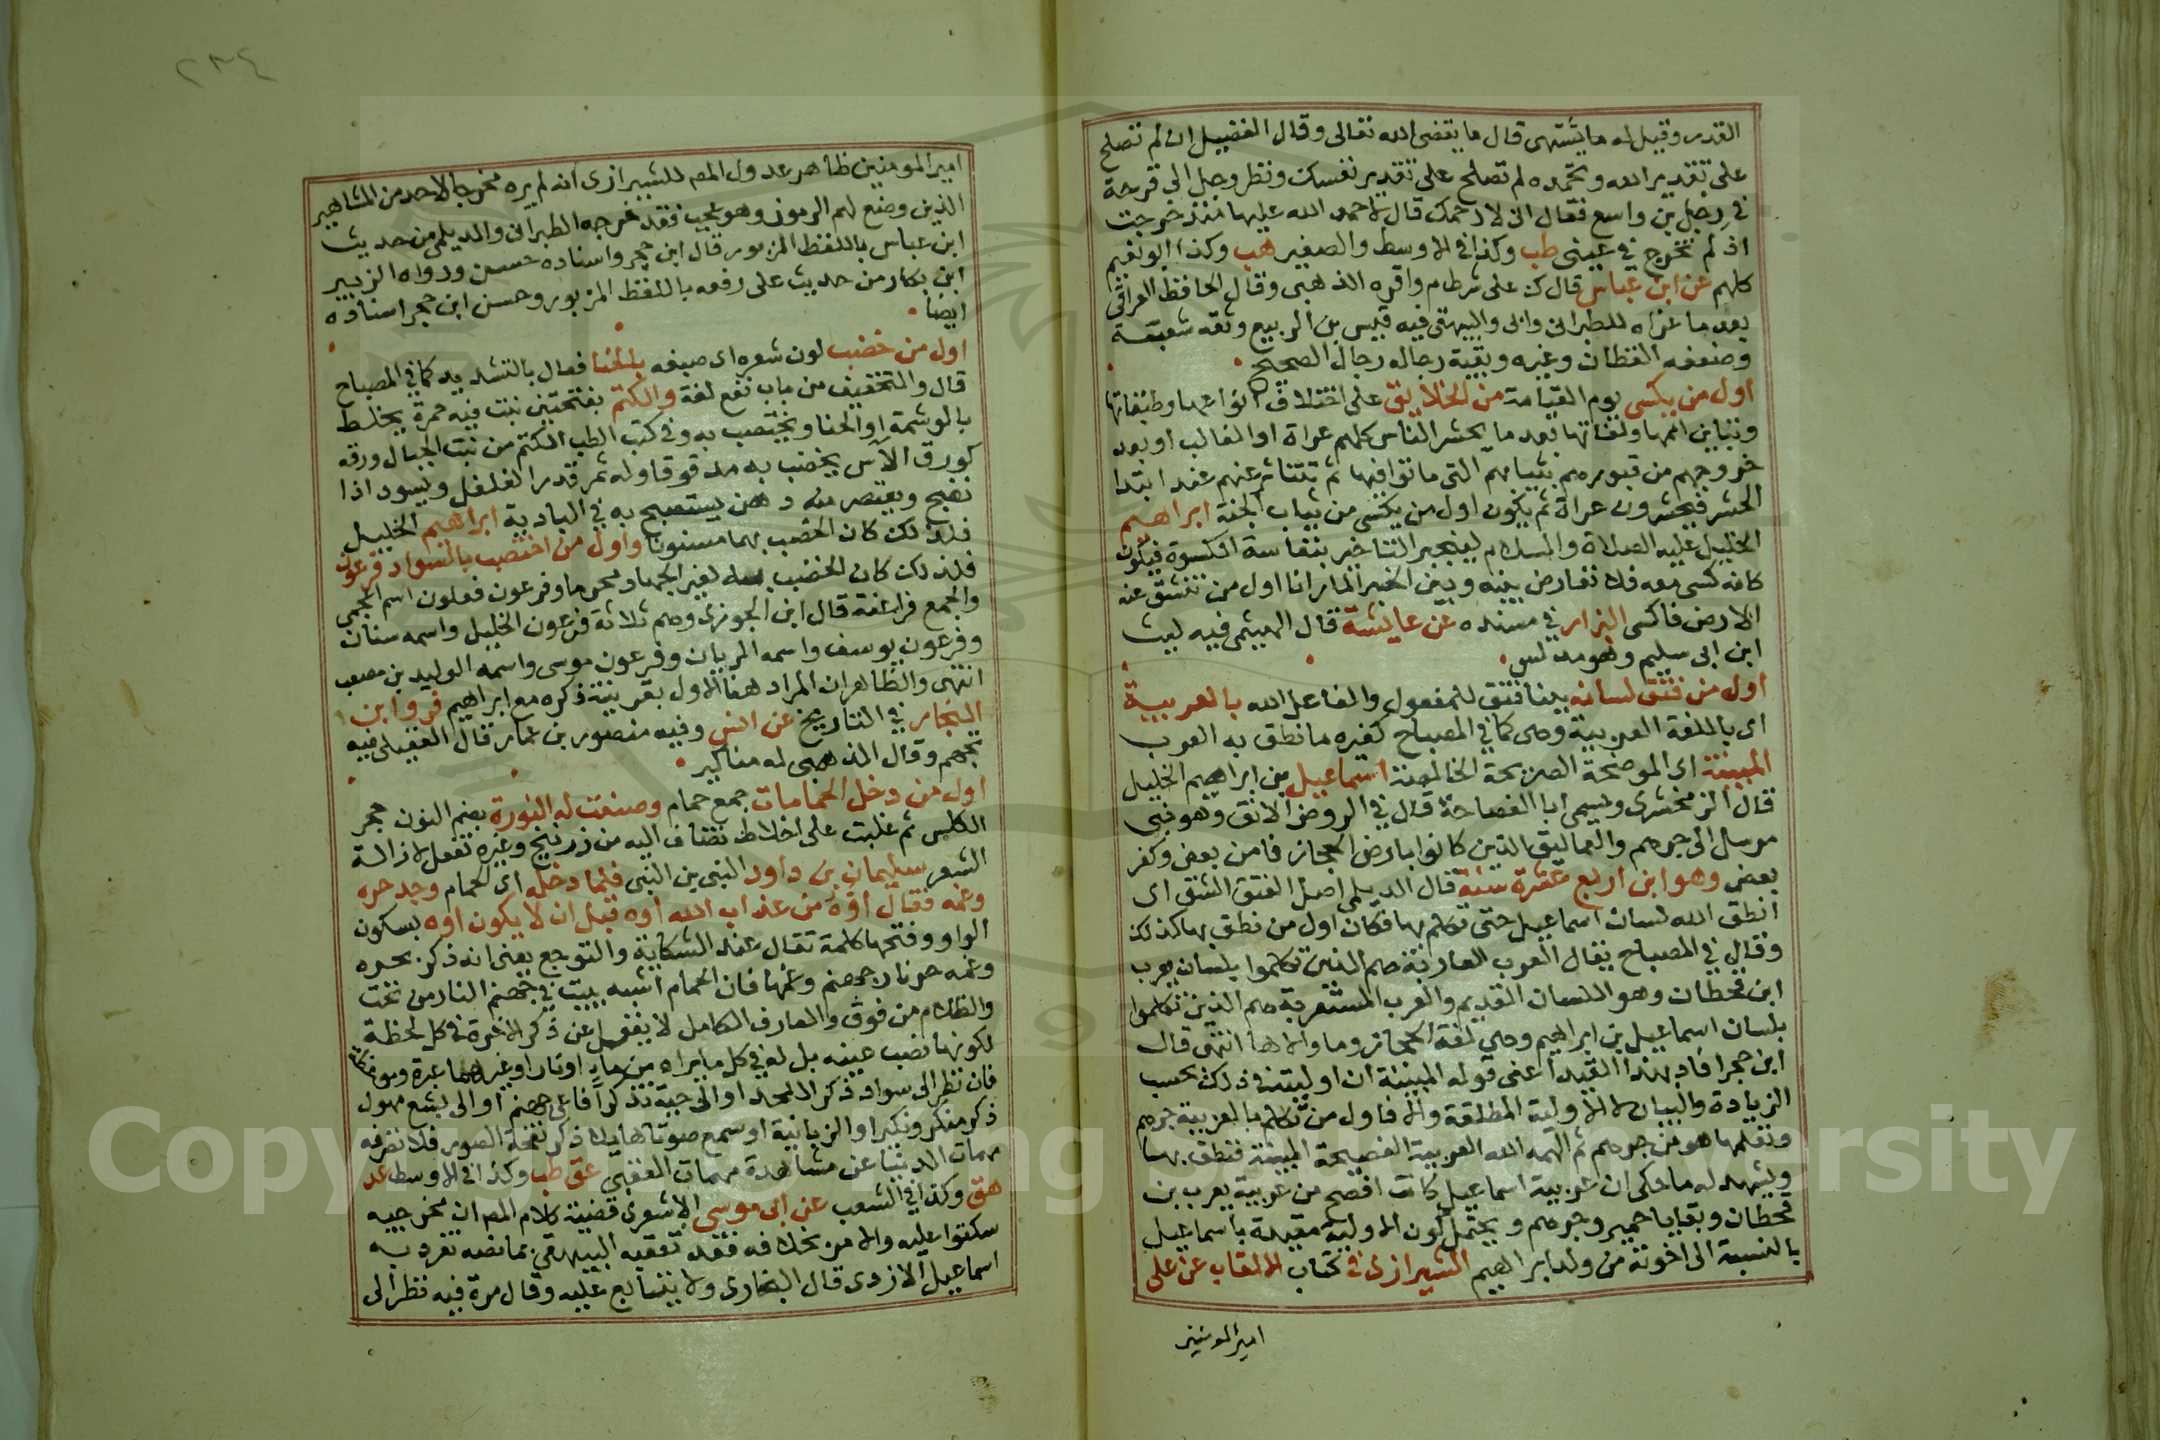 القدر وقيل له ما يشتهى قال ما يقضى الله تعالى وقال الفضيل ان لم تصلح
على تقدير الله وبحمده لم تصلح على تقدير نفسك ونظر رجل الى قرحة
في رجل بن واسع فقال انى لارحمك قال لاحمد الله عليها منذ خرجت
اذ لم تخرج في عينى طب وكذا في الاوسط والصغير هب وكذا ابو نعيم
كلهم عن ابن عباس قال ك على شرط م واقره الذهبى وقال الحافظ العراقى
بعد ما عزاه للطبرانى والبيهقى فيه قيس بن الربيع وثقه شعبة
وضعفه القطان وغيره وبقية رجاله رجال الصحيح
اول من يكسى يوم القيامة من الخلايق على اختلاف انواعها وطبقاتها
وتباين اممها ولغاتها بعد ما يحشر الناس كلهم عراة او الغالب او بعد
خروجهم من قبورهم بثيابهم التى ماتوا فيها ثم تتناثر عنهم عند ابتدا
الحشر فيحشرون عراة ثم يكون اول من يكسى من ثياب الجنة ابراهيم
الخليل عليه الصلاة والسلام بنفاسة الكسوة فيكون
كانه كسى معه فلا تعارض بينه وبين الخبر المار انا اول من تنشق عنه
الارض فاكسى البزار في مسنده عن عايشة قال الهيثمى فيه ليث
ابن ابى سليم وهو مدلس
اول من فتق لسانه ببنا فتق للمفعول والفاعل الله بالعربية
اى باللغة العربية وهى كما في المصباح كغيره ما نطق به العرب
المبينة اى الموضحة الصريحة الخالصة اسماعيل بن ابراهيم الخليل
قال الزمخشرى ويسمى ابا الفصاحة قال في الروض الانق وهو نبى
مرسل الى جرهم والعماليق الذين كانوا بارض الحجاز فامن بعض وكفر
بعض وهو ابن اربع عشرة سنة قال الديلمى اصل الفتق الشق اى
انطق الله لسان اسماعيل حتى تكلم بها فكان اول من نطق بها كذلك
وقال في المصباح يقال العرب العاربة هم الذين تكلموا بلسان يعرب
ابن قحطان وهو اللسان القديم والعرب المستعربة هم الذين تكلموا
بلسان اسماعيل بن ابراهيم وهى لغة الحجاز وما والاها انتهى قال
ابن حجر افاد بهذا القيد اعنى قوله المبينة ان اوليته في ذلك بحسب
الزيادة والبيان لا الاولية المطلقة والا فاول من تكلم بالعربية جرهم
وتعلمها هو من جرهم ثم الهمه الله العربية الفصيحة المبينة فنطق بها
ويشهد له ما حكى ان عربية اسماعيل كانت افصح من عربية يعرب بن
قحطان وبقايا حمير وجرهم ويحتمل كون الاولية مقيدة باسماعيل
بالنسبة الى اخوته من ولد ابراهيم الشيرازى في كتاب الالقاب عن على
امير المومنين
٢٣٤
امير المومنين ظاهر عدول المص للشيرازى انه لم يره مخرجا لاحد من المشاهير
الذين وضع لهم الرموز وهو عجب فقد خرجه الطبرانى والديلمى من حديث
ابن عباس باللفظ المزبور قال ابن حجر واسناده حسن ورواه الزبير
ابن بكار من حديث على رفعه باللفظ المزبور وحسن ابن حجر اسناده
ايضا
اول من خضب لون شعره اى صبغه بالحنا فعال بالتشديد كما في المصباح
قال والتخفيف من باب نفع لغة والكتم بفتحتين نبت فيه حمرة يخلط
بالوشمة او الحنا ويختضب به وفي كتب الطب الكتم من نبت الجبال ورقه
كورق الآس يخضب به مدقوقا وله ثمر قدر الفلفل ويسود اذا
نضج ويعتصر منه دهن يستصبح به في البادية ابراهيم الخليل
فلذلك كان الخضب بهما مسنونا واول من اختضب بالسواد فرعون
فلذلك كان الخضب به لغير الجهاد محرما وفرعون فعلون اسم اعجمى
والجمع فراعنة قال ابن الجوزى وهم ثلاثة فرعون الخليل واسمه سنان
وفرعون يوسف واسمه الريان وفرعون موسى واسمه الوليد بن مصعب
انتهى والظاهر ان المراد هنا الاول بقرينة ذكره مع ابراهيم فر وابن
النجار في التاريخ عن انس وفيه منصور بن عمار قال العقيلى فيه
تجهم وقال الذهبى له مناكير
اول من دخل الحمامات جمع حمام وصنعت له النورة بضم النون حجر
الكلس ثم غلبت على اخلاط تضاف اليه من زرنيخ وغيره تفعل لازالة
الشعر سليمان بن داود النبى بن النبى فلما دخله اى الحمام وجد حره
وغمه فقال اوه من عذاب الله اوه قبل ان لا يكون اوه بسكون
الواو وفتحها كلمة تقال عند الشكاية والتوجع يعنى انه ذكر بحره
وغمه حر نار جهنم وغمها فان الحمام اشبه ببيت في جهنم النار من تحت
والظلام من فوق والعارف الكامل لا يغفل عن ذكر الاخرة في كل لحظة
لكونها نصب عينيه بل له في كل ما يراه من ما او نار او غيرهما عبرة وموعظة
فان نظر الى سواد ذكر اللحد او الى حية تذكر افاعى جهنم او الى بشع مهول
ذكر منكر ونكيرا والزبانية او سمع صوتا هايلا ذكر نفخة الصور فلا تصرفه
مهمات الدنيا عن مشاهدة مهمات العقبى عق طب وكذا في الاوسط عد
هق وكذا في الشعب عن ابى موسى الاشعرى قضية كلام المص ان مخرجيه
سكتوا عليه والامر بخلافه فقد تعقبه البيهقى بما نصه تفرد به
اسماعيل الازدى قال البخارى ولا يتابع عليه وقال مرة فيه نظر الى
Copyright © King Saud University